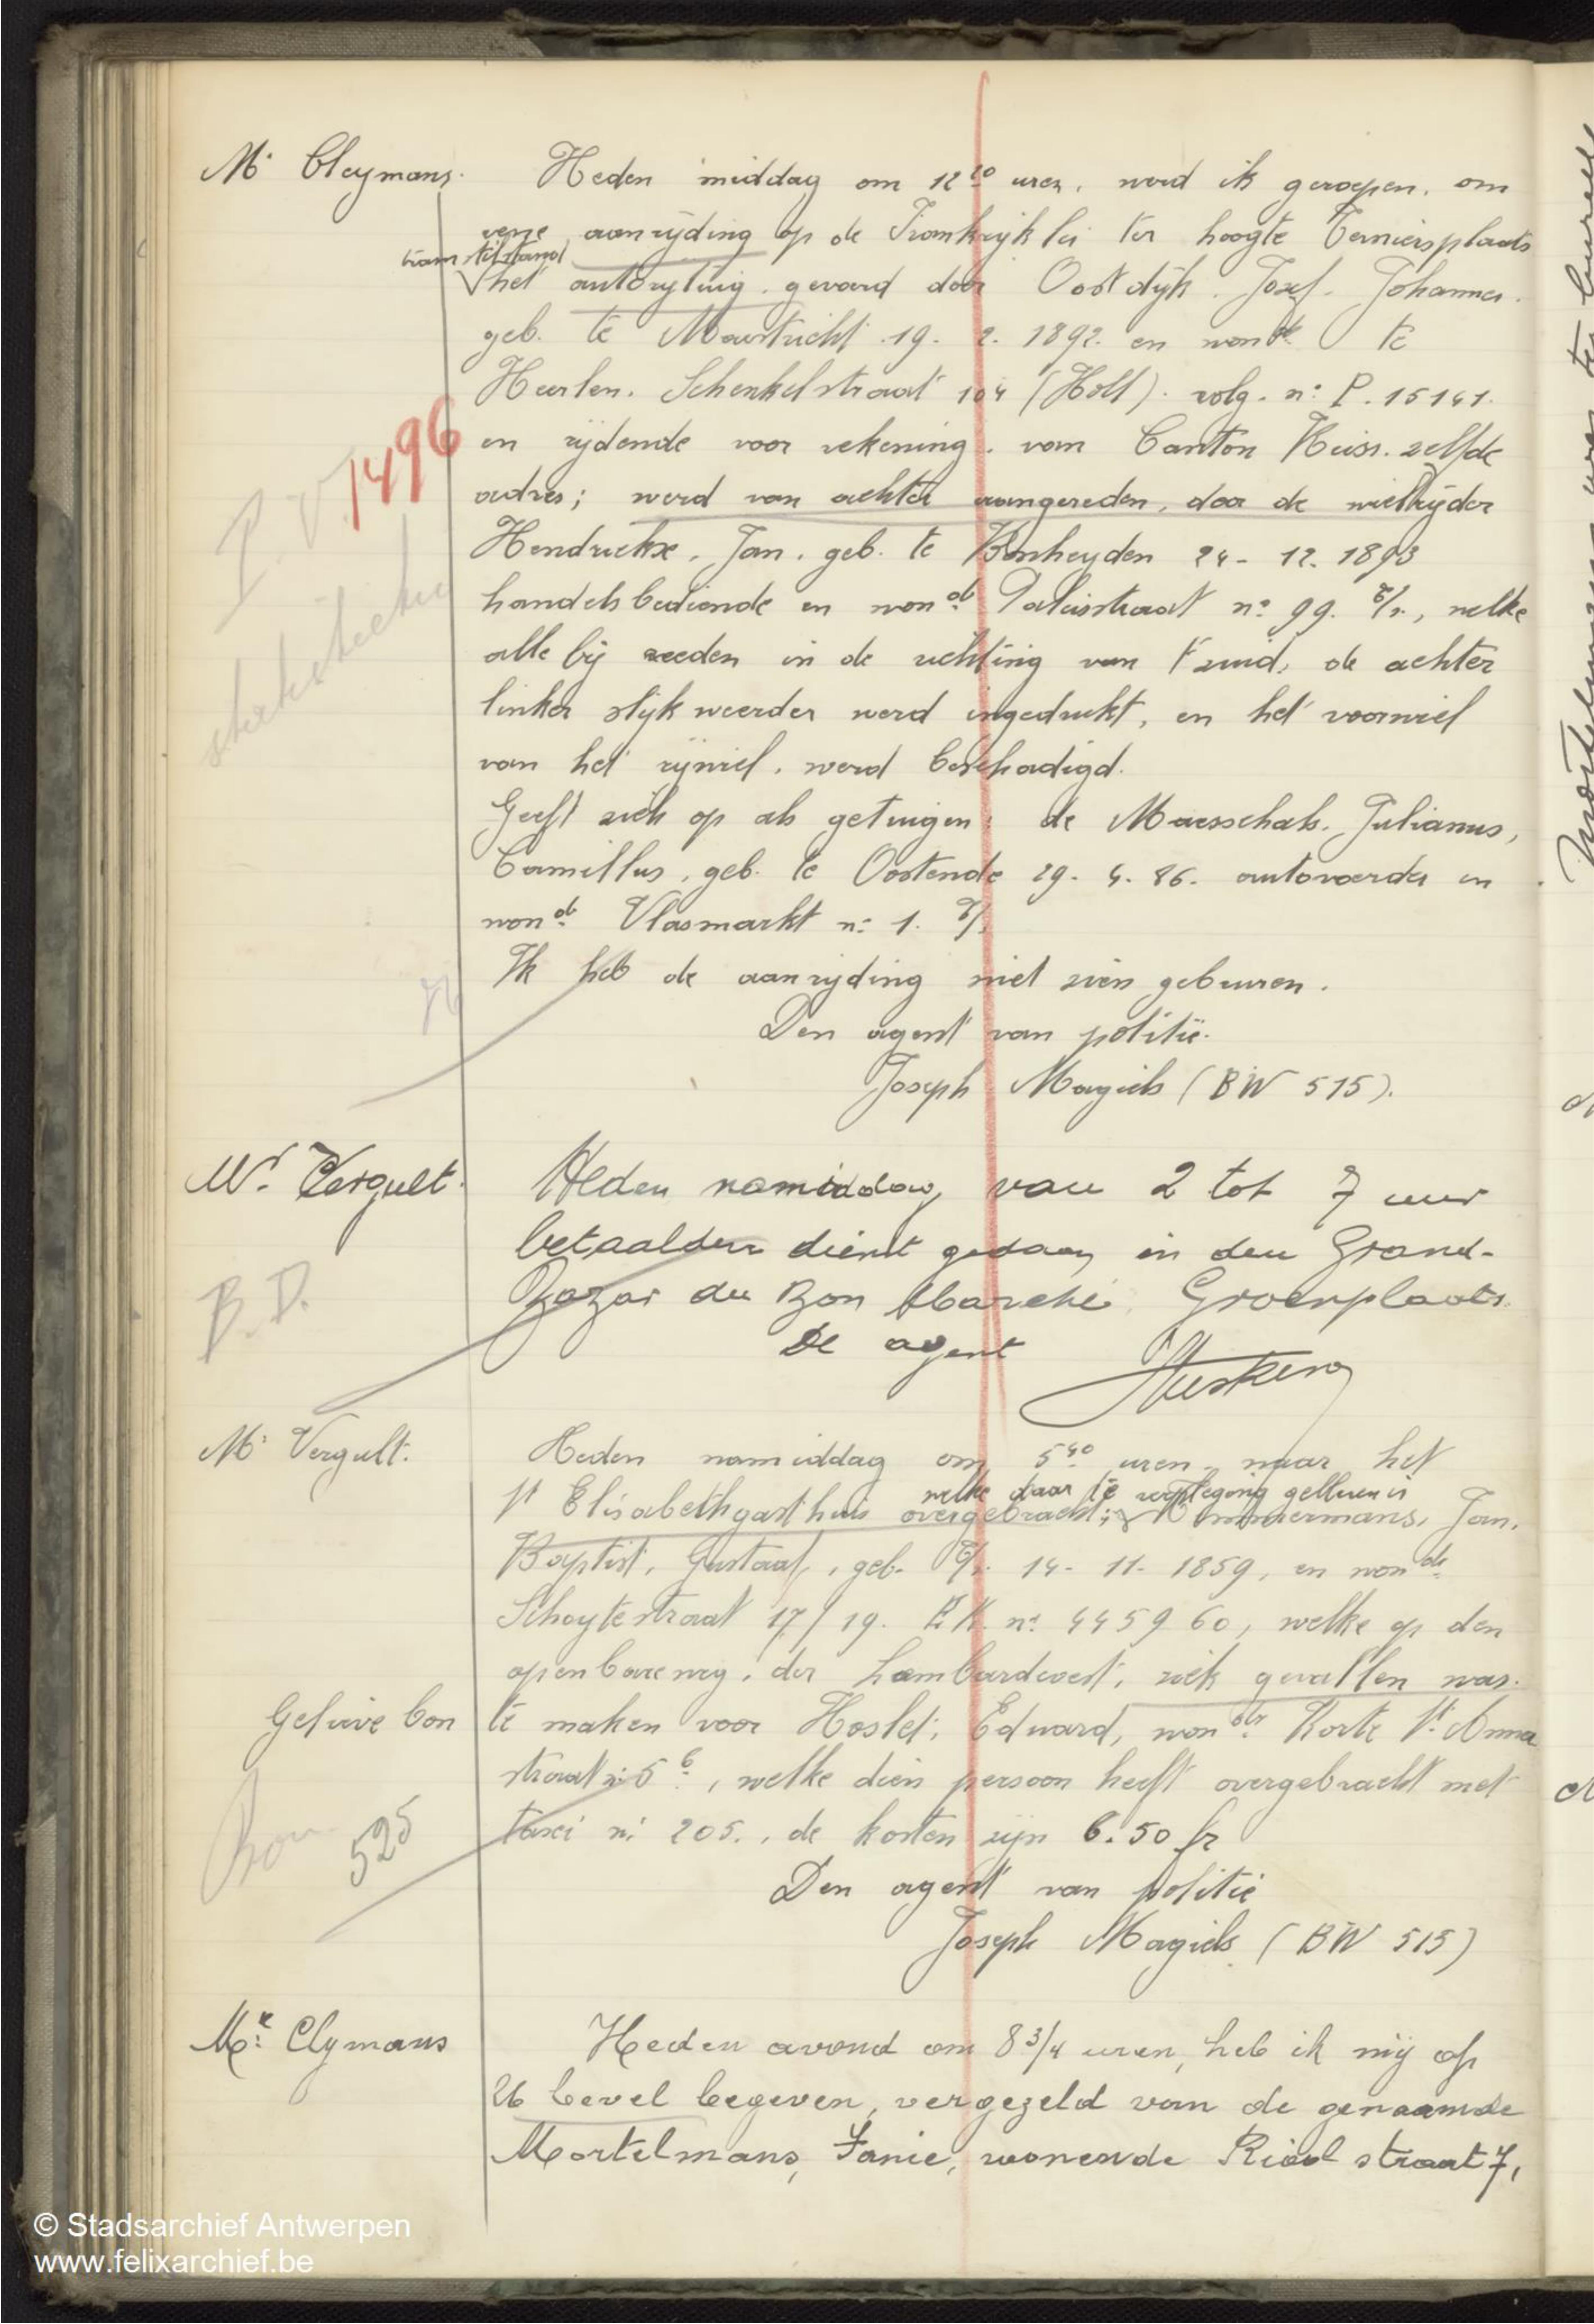 Mr Cleymans.
Heden middag om 12 10 uren, werd ik geroepen, om
eene aanrijding op de Frankrijklei ter hoogte Teniersplaats
tram stilstand
het autorijtuig gevoerd door Oostdijk Josef Johannes.
geb. te Maastricht 19. 2. 1892 en wonde te
Heerlen. Schenkelstraat 104 (Holl). volg. n: P. 15141.
P.V. 1496
en rijdende voor rekening van Canton Heiss. zelfde
adres; werd van achter aangereden, door de wielrijder
Hendrickx, Jan, geb. te Bonheyden 24 - 12. 1893
handelsbediende en wonde Paleisstraat n: 99. A/n, welke
alle bij reeden in de richting van t' zuid, de achter
linker slijkweerder werd ingedrukt, en het voorwiel
van het rijwiel, werd beschadigd.
Geeft zich op als getuigen: de Maesschals. Julianus,
Camillus, geb. te Oostende 29. 4. 86. autovoerder en
wonde Vlasmarkt n: 1. A/
Ik heb de aanrijding niet zien gebeuren.
Den agent van politie.
Joseph Magiels (BW 515).
Mr. Vergult.
Heden namiddag van 2 tot 7 uur
betaalden dienst gedaan in den Grand-
B.D.
Bazar du Bon Marché Groenplaats.
De agent
Mr Vergult.
Heden namiddag om 5 40 uren naar het
welke daar te verpleging gebleven is
St Elisabethgasthuis overgebracht; Timmermans, Jan,
Baptist, Gustaaf, geb. A/n. 14 - 11 - 1859, en wonde
Schoytestraat 17/19. E.K. n: 445960, welke op den
openbareweg, der Lombardvest, ziek gevallen was.
Gelieve bon te maken voor Hoslet, Edward, wonde Korte St Anna
straat n: 5 b, welke dien persoon heeft overgebracht met
Bon 525
taxi n: 205., de kosten zijn 6.50 fr
Den agent van politie
Joseph Magiels (BW 515)
Mr: Clymans
Heden avond om 8 3/4 uren, heb ik mij op
Ub bevel begeven, vergezeld van de genaamde
Mortelmans, Fanie, wonende Rioolstraat 7,
© Stadsarchief Antwerpen
www.felixarchief.be